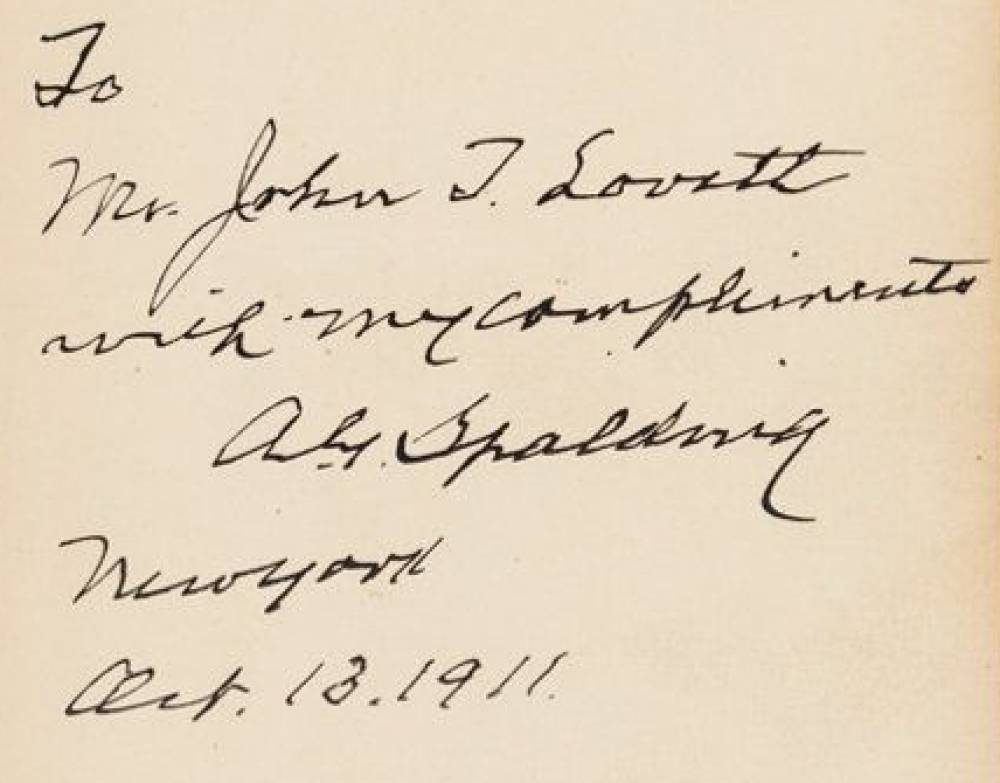 To
Mr. John T. Lovett
with my compliments
A.G. Spalding
New York
Oct. 13. 1911.